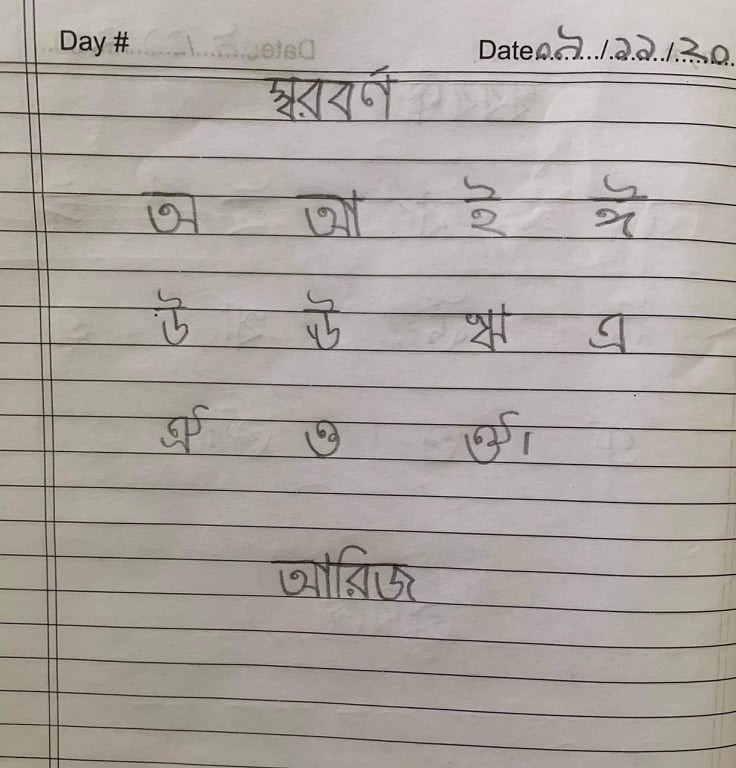 Day # Date ০৯/১১/২০
স্বরবর্ণ
অ আ ই ঈ
উ ঊ ঋ এ
ঐ ও ঔ।
আরিজ